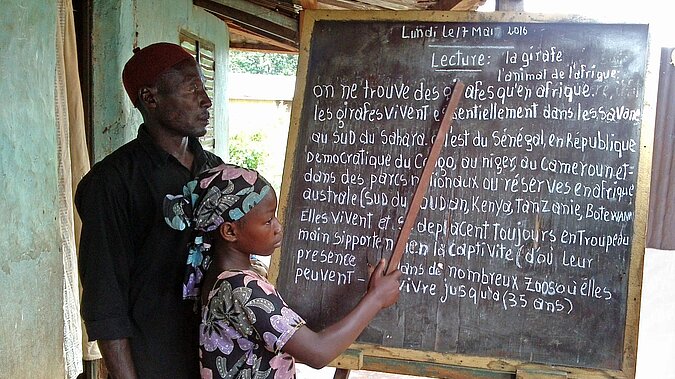 Lundi le 17 Mai 2016
Lecture: la girafe
l'animal de l'afrique.
on ne trouve des girafes qu'en afrique.
les girafes vivent essentiellement dans les savane
au sud du Sahara. l'est du Sénégal, en République
Democratique du Congo, au niger, au cameroun et
dans des parcs nationaux ou réserves en afrique
australe (sud du Sudan, Kenya, Tanzanie, Botswana
Elles vivent et se deplacent toujours en troupeau
main supportent bien la captivité (d'où leur
presence dans de nombreux zoos où elles
peuvent vivre jusqu'à (35 ans)